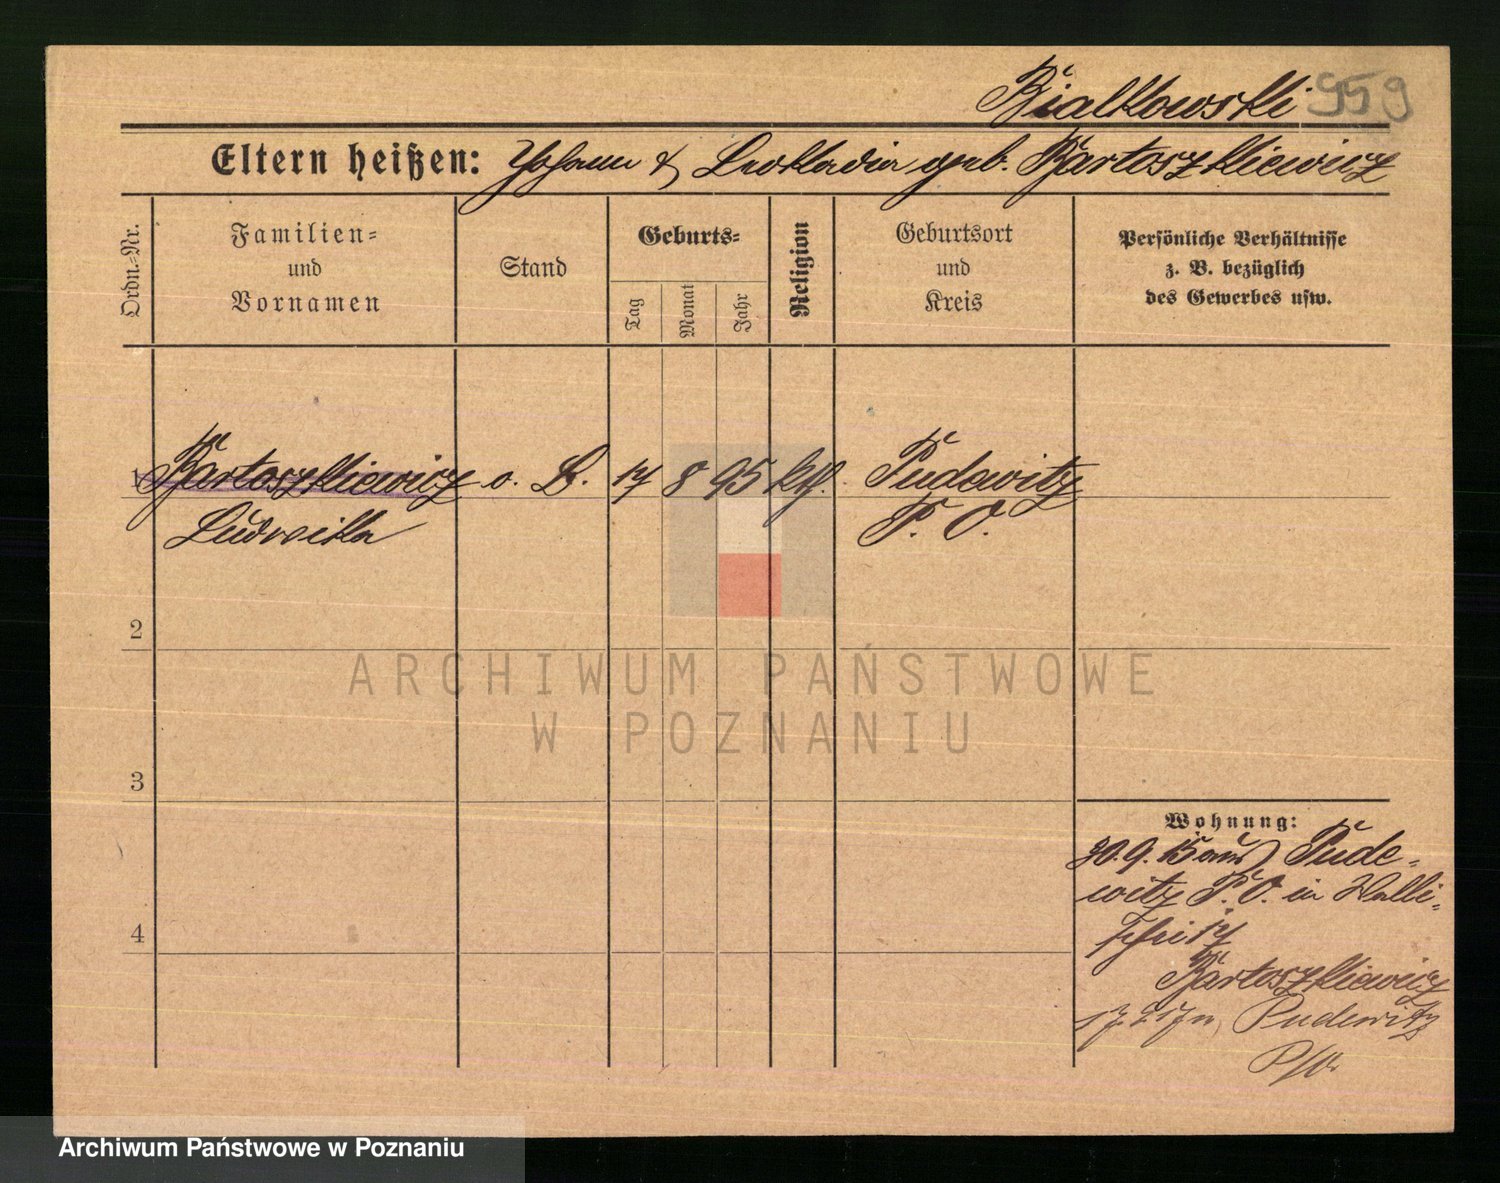 Bialkowski 959
Eltern heißen: Johann & Leokadia geb. Bartoszkiewicz
Ordn.-Nr.
Familien-
und
Vornamen
Stand
Geburts-
Tag
Monat
Jahr
Religion
Geburtsort
und
Kreis
Persönliche Verhältnisse
z. B. bezüglich
des Gewerbes usw.
1 Bartoszkiewicz o. B. 17 8 95 kth. Pudewitz
Ludwika P. O.
2
ARCHIWUM PAŃSTWOWE
W POZNANIU
3
Wohnung:
30.9.15 aus Pude-
witz P. O. in Walli-
schei 17
4
Bartoszkiewicz
Pudewitz
P/O.
Archiwum Państwowe w Poznaniu